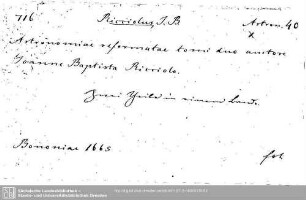 716 Ricciolus, J. B Astron. 40
x
Astronomiae reformatae tomi duo auctore
Joanne Baptista Ricciolo.
Zwei Theile in einem Bande.
Bononiae 1665 fol
Sächsische Landesbibliothek –
Staats- und Universitätsbibliothek Dresden